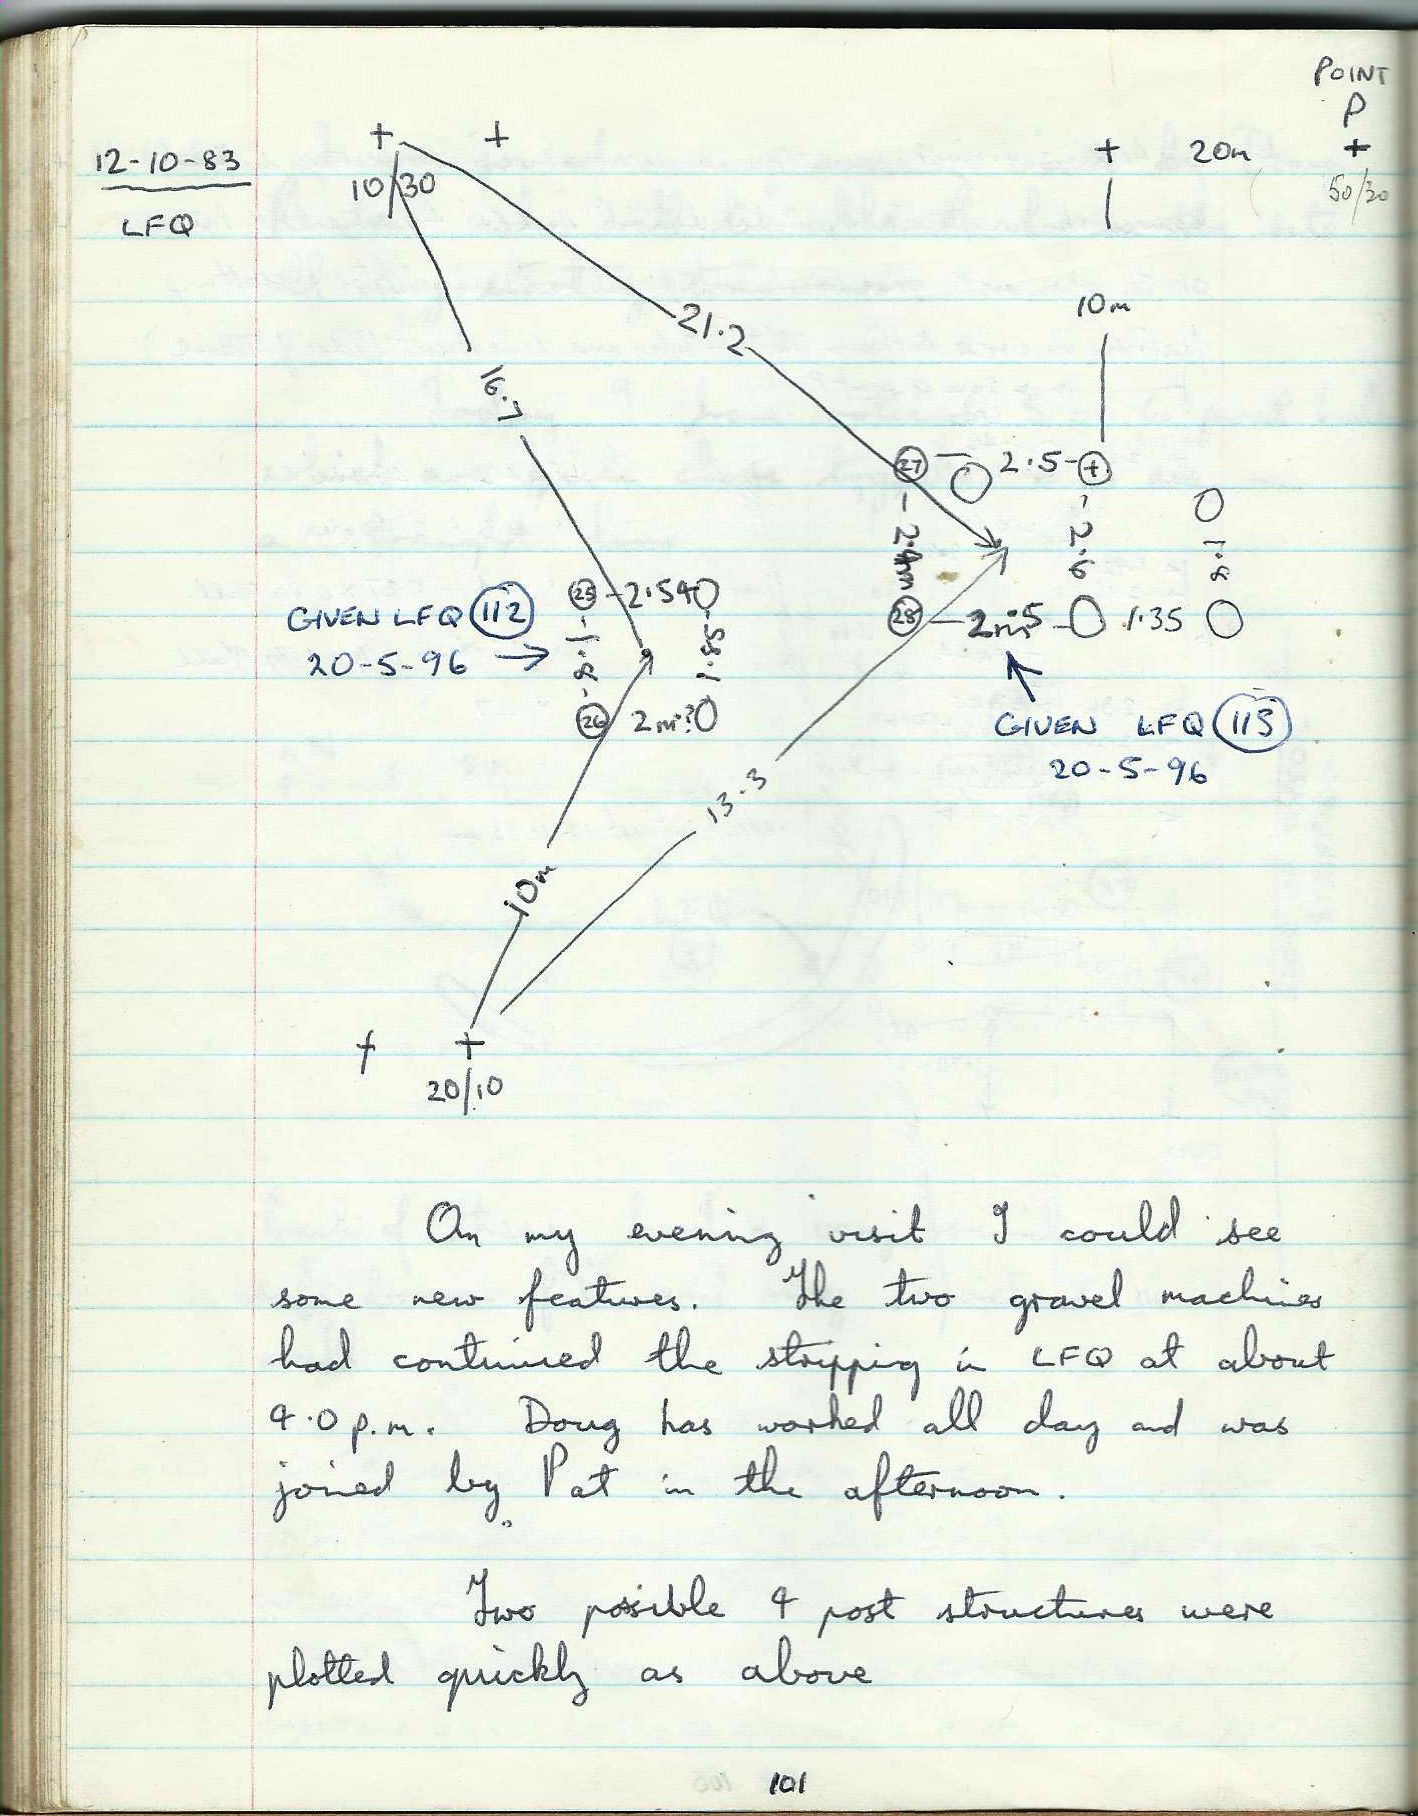 POINT
P
12-10-83
LFQ
+ +
10/30
+ 20m +
50/30
10m
21.2
16.7
27 2.5 +
2.4m 2.6 1.8
25 2.54
GIVEN LFQ 112
20-5-96 →
1.8 1.55
26 2m?
28 2m .5 1.35
GIVEN LFQ 113
20-5-96
13.3
10m
+ +
20/10
On my evening visit I could see
some new features. The two gravel machines
had continued the stripping in LFQ at about
4.0 p.m. Doug has worked all day and was
joined by Pat in the afternoon.
Two possible 4 post structures were
plotted quickly as above
101